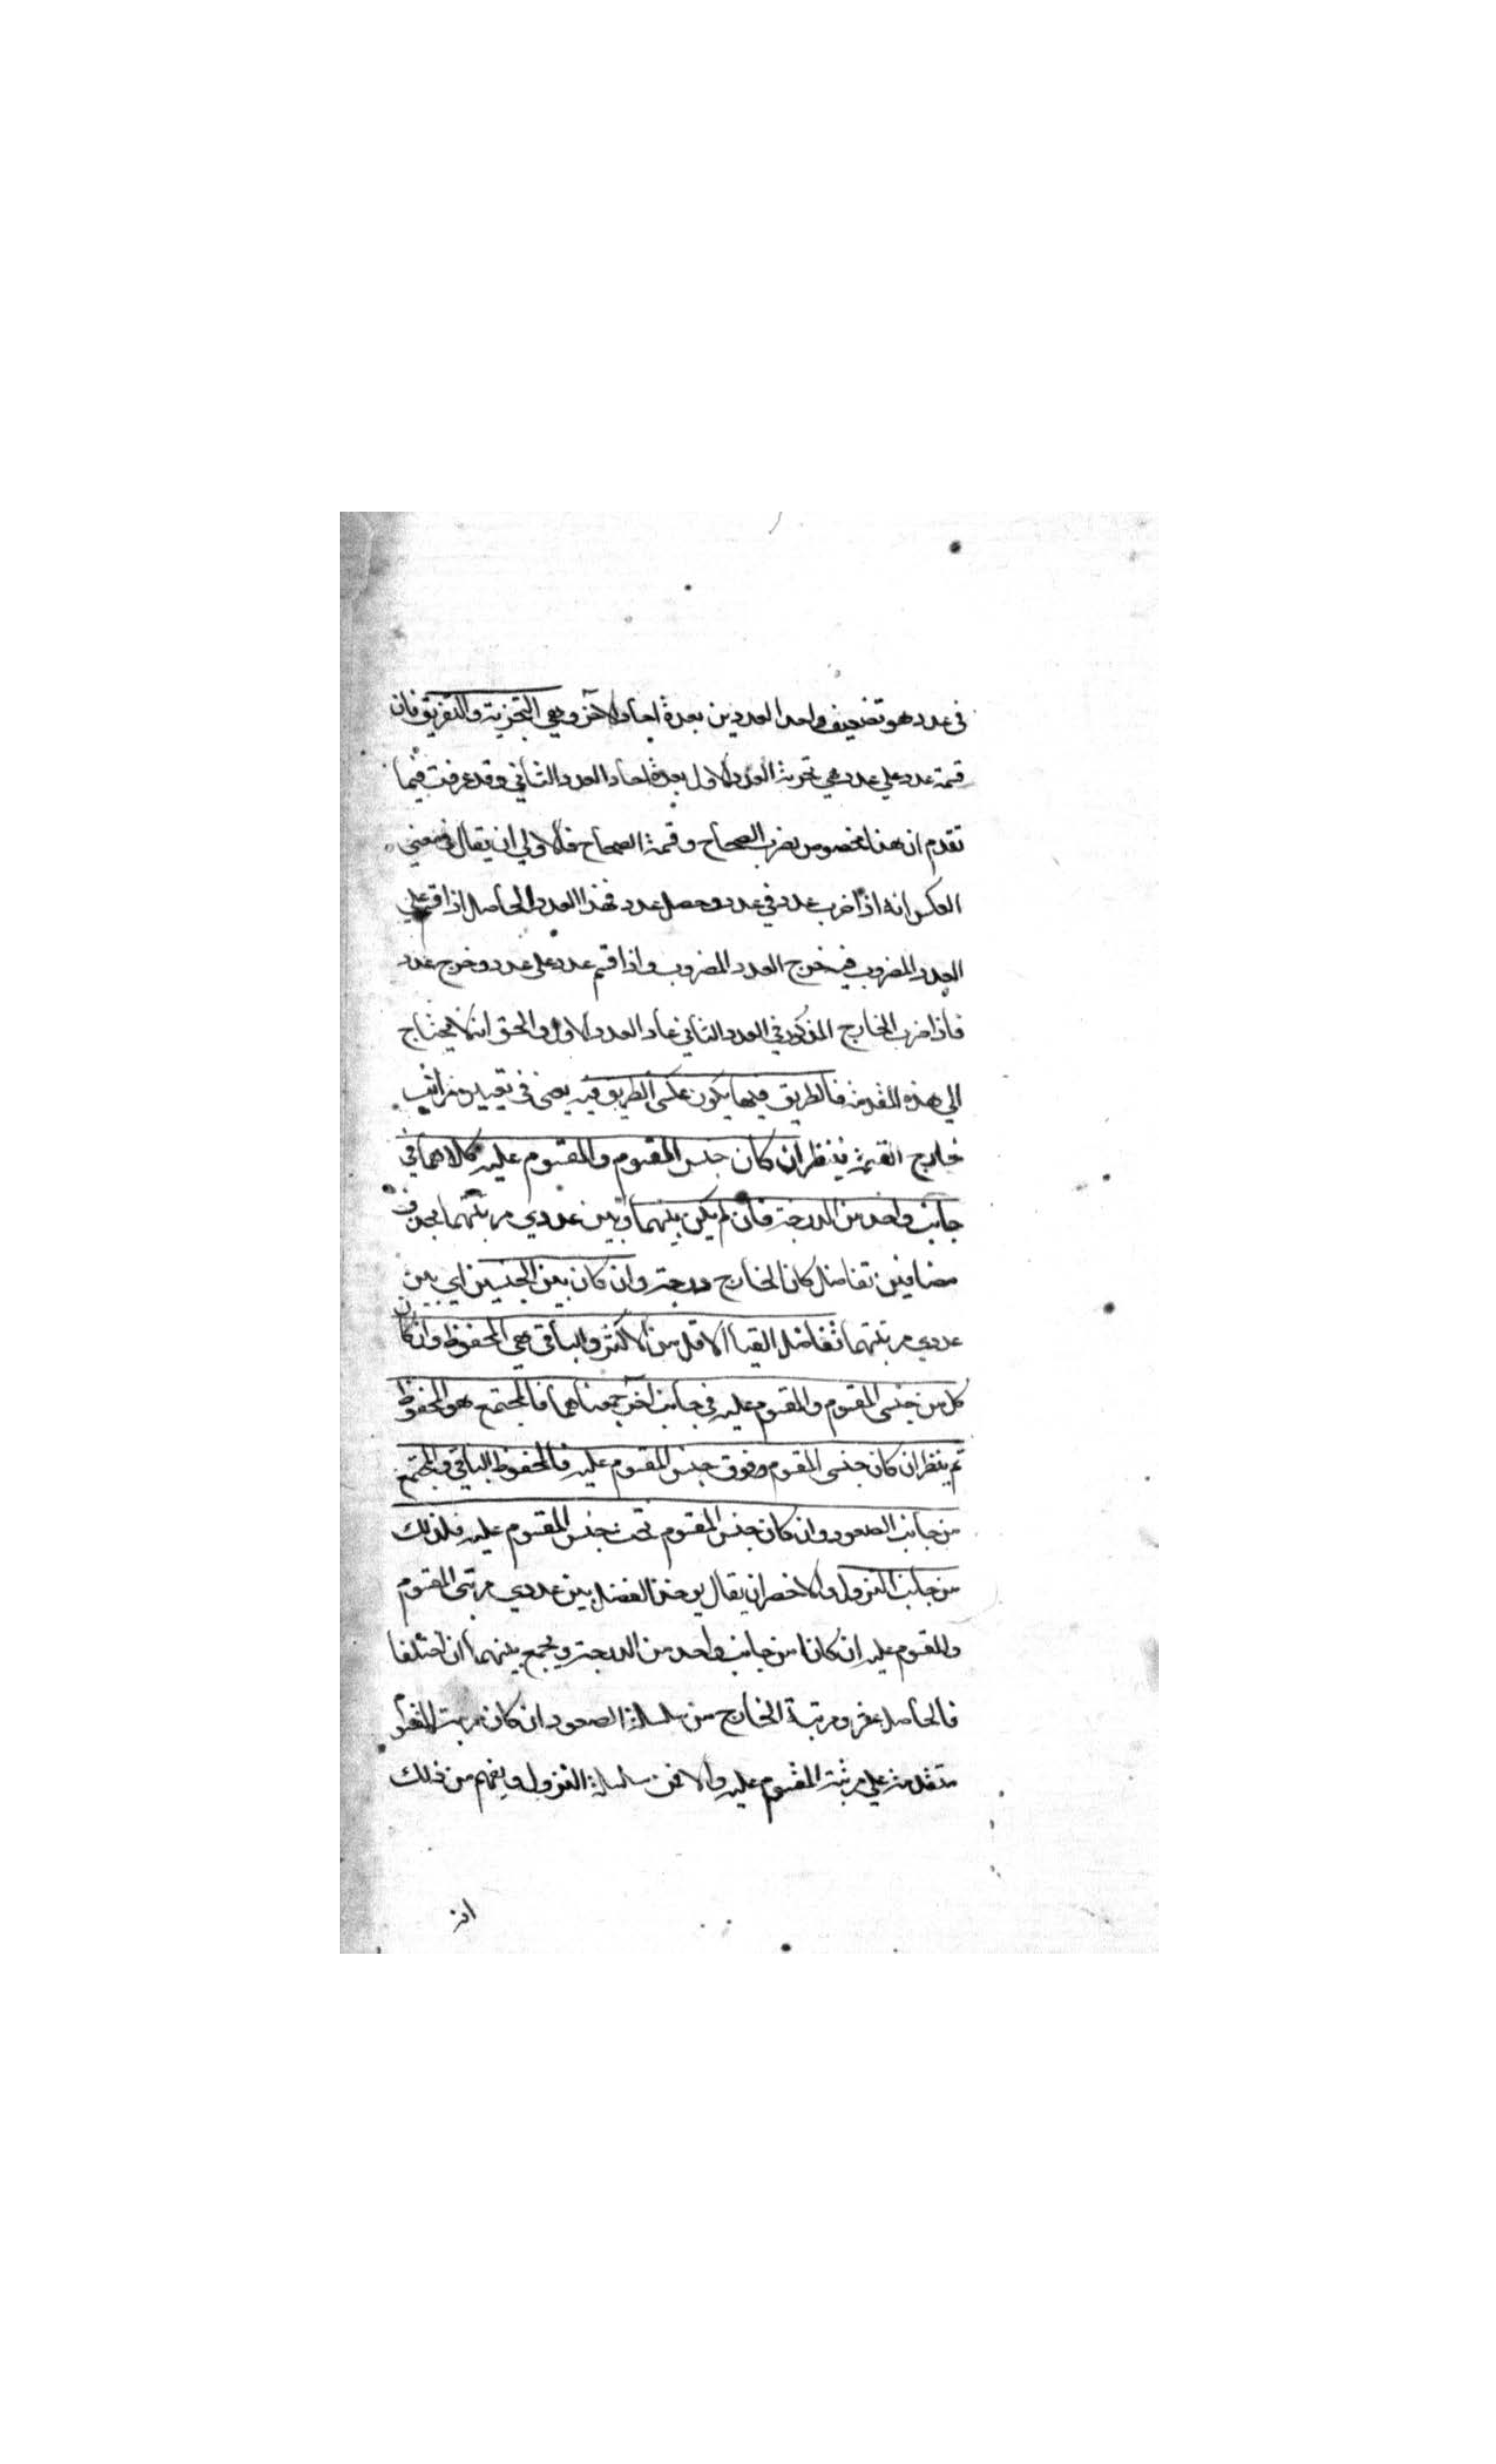 في عدد هو تضعيف واحد العددين بعدة احاد الاخر وهي التجزية والتفريق فان
قسمة عدد علي عدد هي تجزية العدد الاول بعدة احاد العدد الثاني وقد عرفت فيما
تقدم ان هذا مخصوص بضرب الصحاح وقسمة الصحاح فالاولي ان يقال في معني
العكس انه اذا ضرب عدد في عدد وحصل عدد فهذا العدد الحاصل اذا قسم علي
العدد المضروب فيه خرج العدد المضروب واذا قسم عدد علي عدد وخرج عدد
فاذا ضرب الخارج المذكور في العدد الثاني عاد العدد الاول والحق انه لا يحتاج
الي هذه المقدمة فالطريق فيها يكون عكس الطريق فيه يعني في تعيين مراتب
خارج القسمة ينظر ان كان جنس المقسوم والمقسوم عليه كلاهما في
جانب واحد من الدرجة فان لم يكن بينهما وبين عددي مرتبتهما بحذف
مضافين تفاضل كان الخارج درجة وان كان بين الجنسين اي بين
عددي مرتبتهما تفاضل القينا الاقل من الاكثر والباقي هي المحفوظ وان كان
كل من جنسي المقسوم والمقسوم عليه في جانب اخر جمعناهما فالمجتمع هو المحفوظ
ثم ينظر ان كان جنس المقسوم فوق جنس المقسوم عليه فالمحفوظ الباقي والمجتمع
من جانب الصعود وان كان جنس المقسوم تحت جنس المقسوم عليه فلذلك
من جانب النزول والاخصر ان يقال يوخذ الفضل بين عددي مرتبتي المقسوم
والمقسوم عليه ان كانا من جانب واحد من الدرجة ويجمع بينهما ان اختلفا
فالحاصل عدد مرتبة الخارج من سلسلة الصعود ان كان مرتبة المقسوم
متقدمة علي مرتبة المقسوم عليه والا فمن سلسلة النزول ويفهم من ذلك